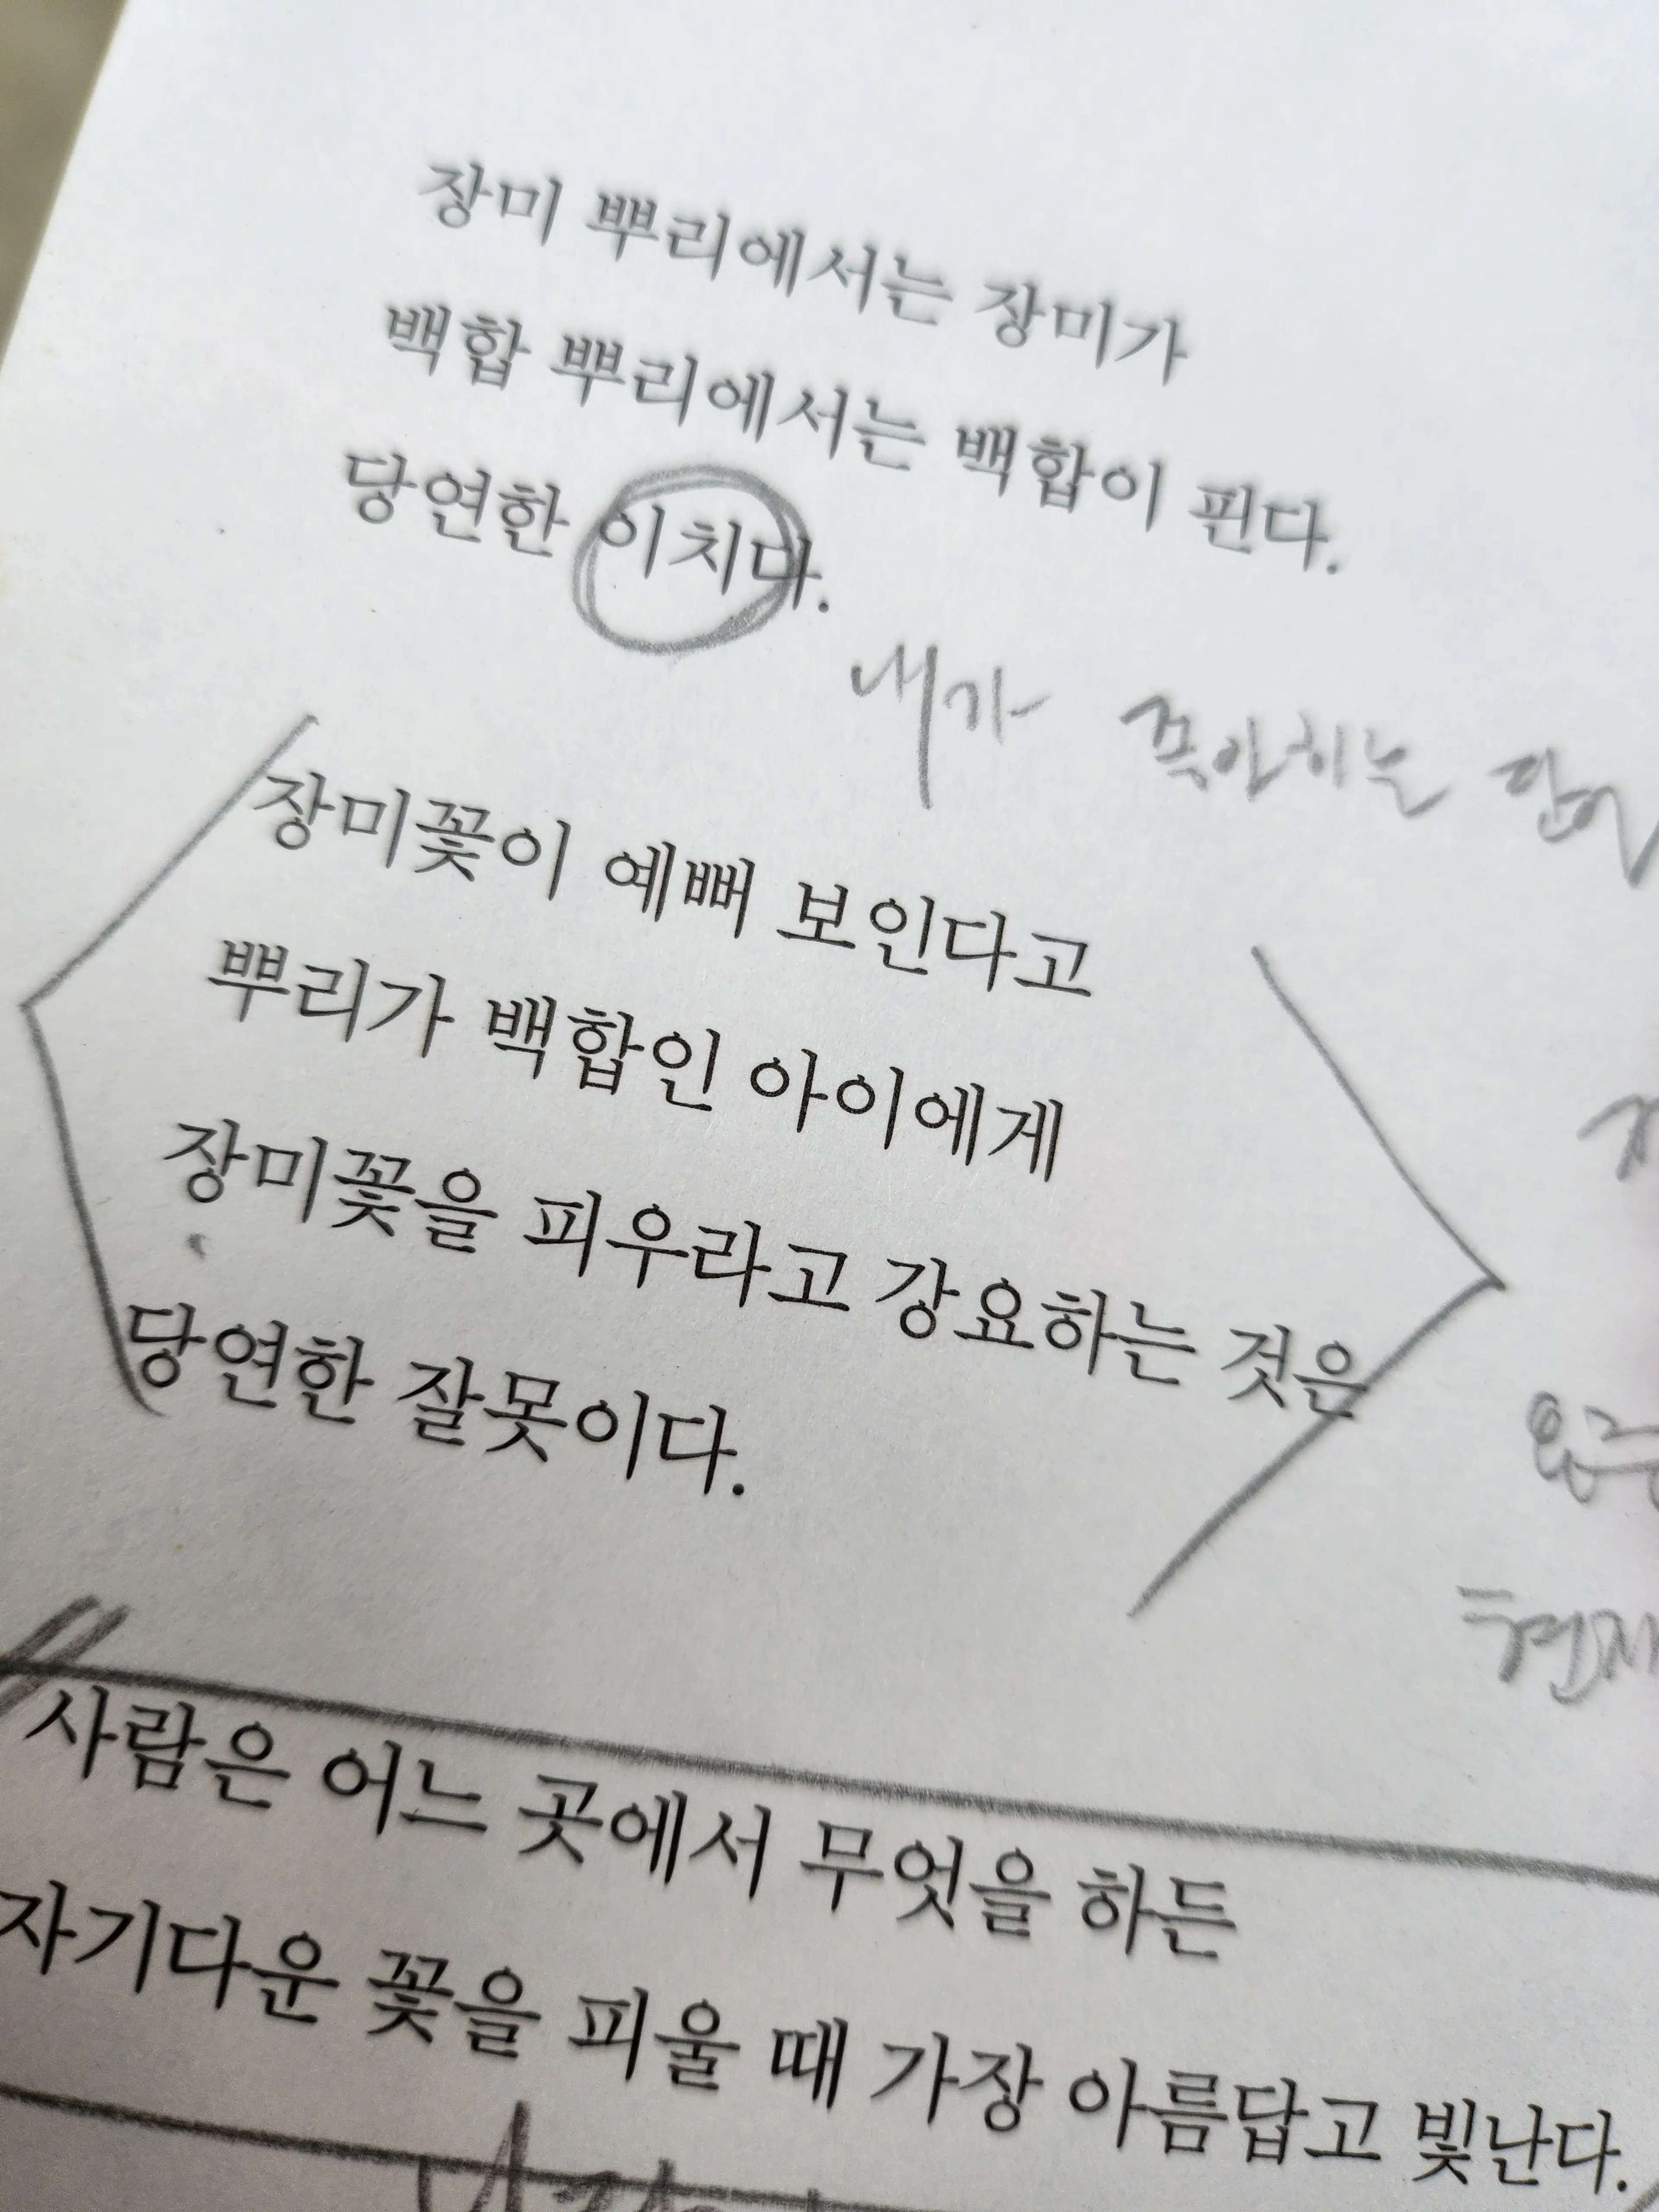 장미 뿌리에서는 장미가
백합 뿌리에서는 백합이 핀다.
당연한 이치다.
내가 좋아하는 단어
장미꽃이 예뻐 보인다고
뿌리가 백합인 아이에게
장미꽃을 피우라고 강요하는 것은
당연한 잘못이다.
현재
사람은 어느 곳에서 무엇을 하든
자기다운 꽃을 피울 때 가장 아름답고 빛난다.